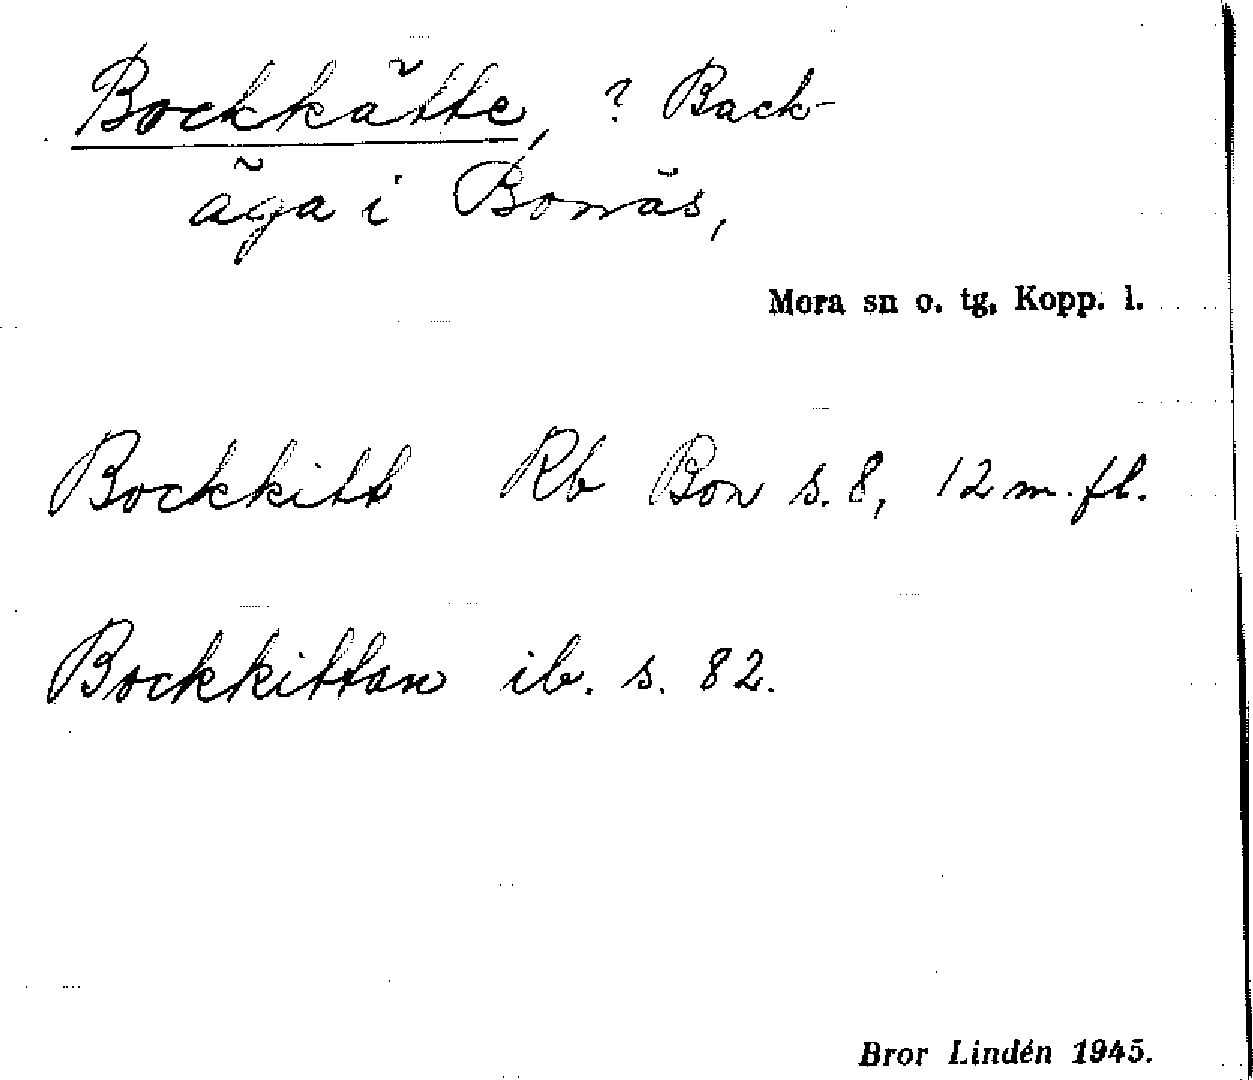 Bockkätte, ? Back-
äga i Bonäs,
Mora sn o. tg, Kopp. l.
Bockkitt Rb Bon s. 8, 12 m. fl.
Bockkittan ib. s. 82.
Bror Lindén 1945.